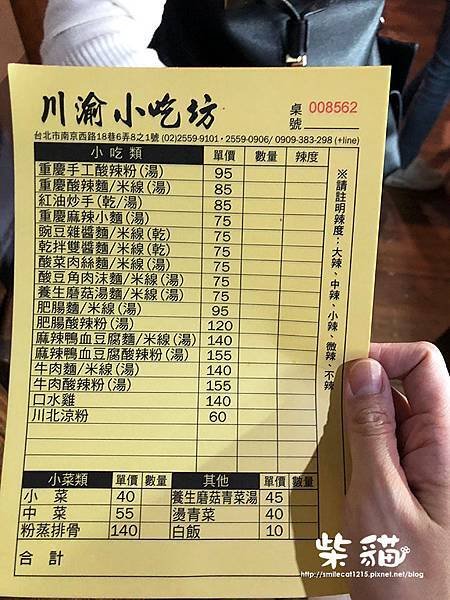 川渝小吃坊
桌號 008562
台北市南京西路18巷6弄8之1號 (02)2559-9101・2559-0906/ 0909-383-298 (+line)
小吃類 單價 數量 辣度
重慶手工酸辣粉(湯) 95
重慶酸辣麵/米線(湯) 85
紅油炒手(乾/湯) 85
重慶麻辣小麵(湯) 75
豌豆雜醬麵/米線(乾) 75
乾拌雙醬麵/米線(乾) 75
酸菜肉絲麵/米線(湯) 75
酸豆角肉沫麵/米線(湯) 75
養生磨菇湯麵/米線(湯) 75
肥腸麵/米線(湯) 95
肥腸酸辣粉(湯) 120
麻辣鴨血豆腐麵/米線(湯) 140
麻辣鴨血豆腐酸辣粉(湯) 155
牛肉麵/米線(湯) 140
牛肉酸辣粉(湯) 155
口水雞 140
川北涼粉 60
※請註明辣度：大辣、中辣、小辣、微辣、不辣
小菜類 單價 數量 其他 單價 數量
小菜 40 養生磨菇青菜湯 45
中菜 55 燙青菜 40
粉蒸排骨 140 白飯 10
合計
柴貓
http://smilecat1215.pixnet.net/blog